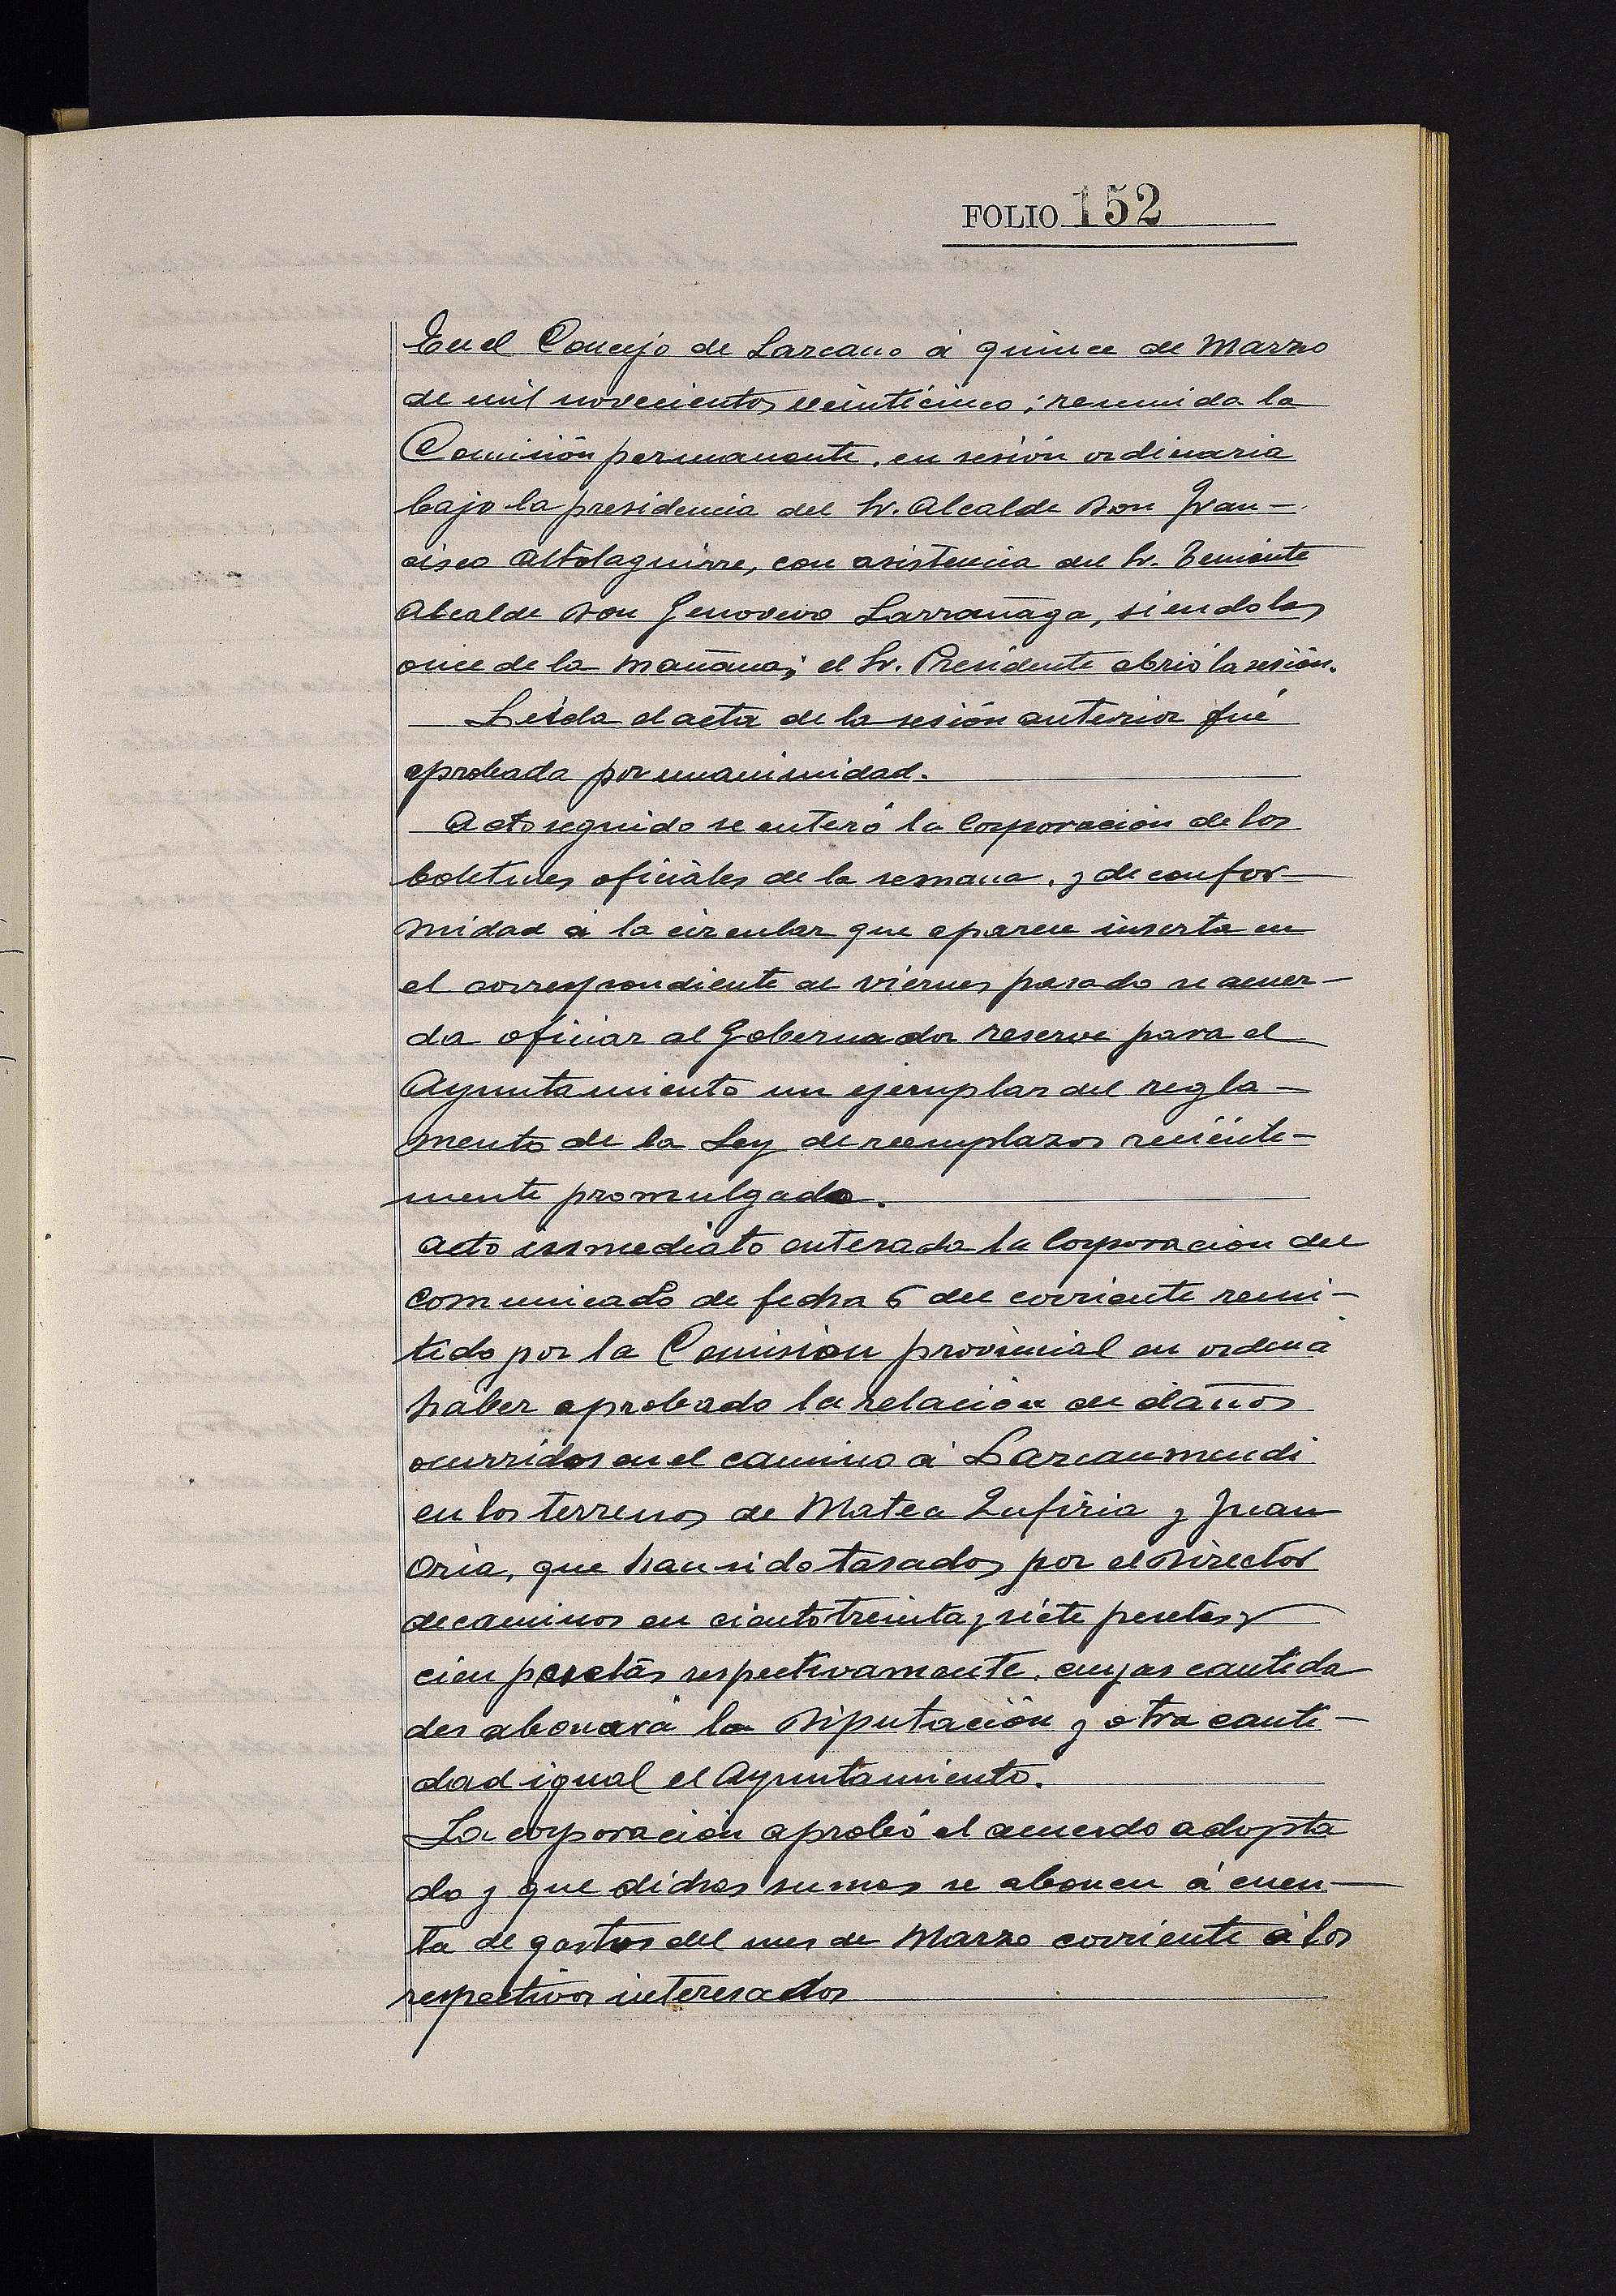 FOLIO 152
En el Concejo de Lazcano á quince de Marzo
de mil novecientos veinticinco; reunida la
Comisión permanente, en sesión ordinaria
bajo la presidencia del Sr. Alcalde Don Fran-
cisco Altolaguirre, con asistencia del Sr. Teniente
Alcalde Don Genovevo Larrañaga, siendo las
once de la mañana; el Sr. Presidente abrió la sesión.
Leida el acta de la sesión anterior fué
aprobada por unanimidad.
Acto seguido se enteró la Corporación de los
boletines oficiales de la semana, y de confor-
midad á la circular que aparece inserta en
el correspondiente al viernes pasado se acuer-
da oficiar al Gobernador reserve para el
Ayuntamiento un ejemplar del regla-
mento de la Ley de reemplazos reciente-
mente promulgado.
Acto inmediato enterada la Corporación del
comunicado de fecha 6 del corriente remi-
tido por la Comisión provincial en orden á
haber aprobado la relación de daños
ocurridos en el camino á Lazcaumendi
en los terrenos de Matea Zufiria y Juan
Oria, que han sido tasados por el Director
de caminos en ciento treinta y siete pesetas y
cien pesetas respectivamente, cuyas cantida
des abonará la Diputación y otra canti-
dad igual el Ayuntamiento.
La corporación aprobó el acuerdo adopta
do y que dichas sumas se abonen á cuen-
ta de gastos del mes de Marzo corriente á los
respectivos interesados